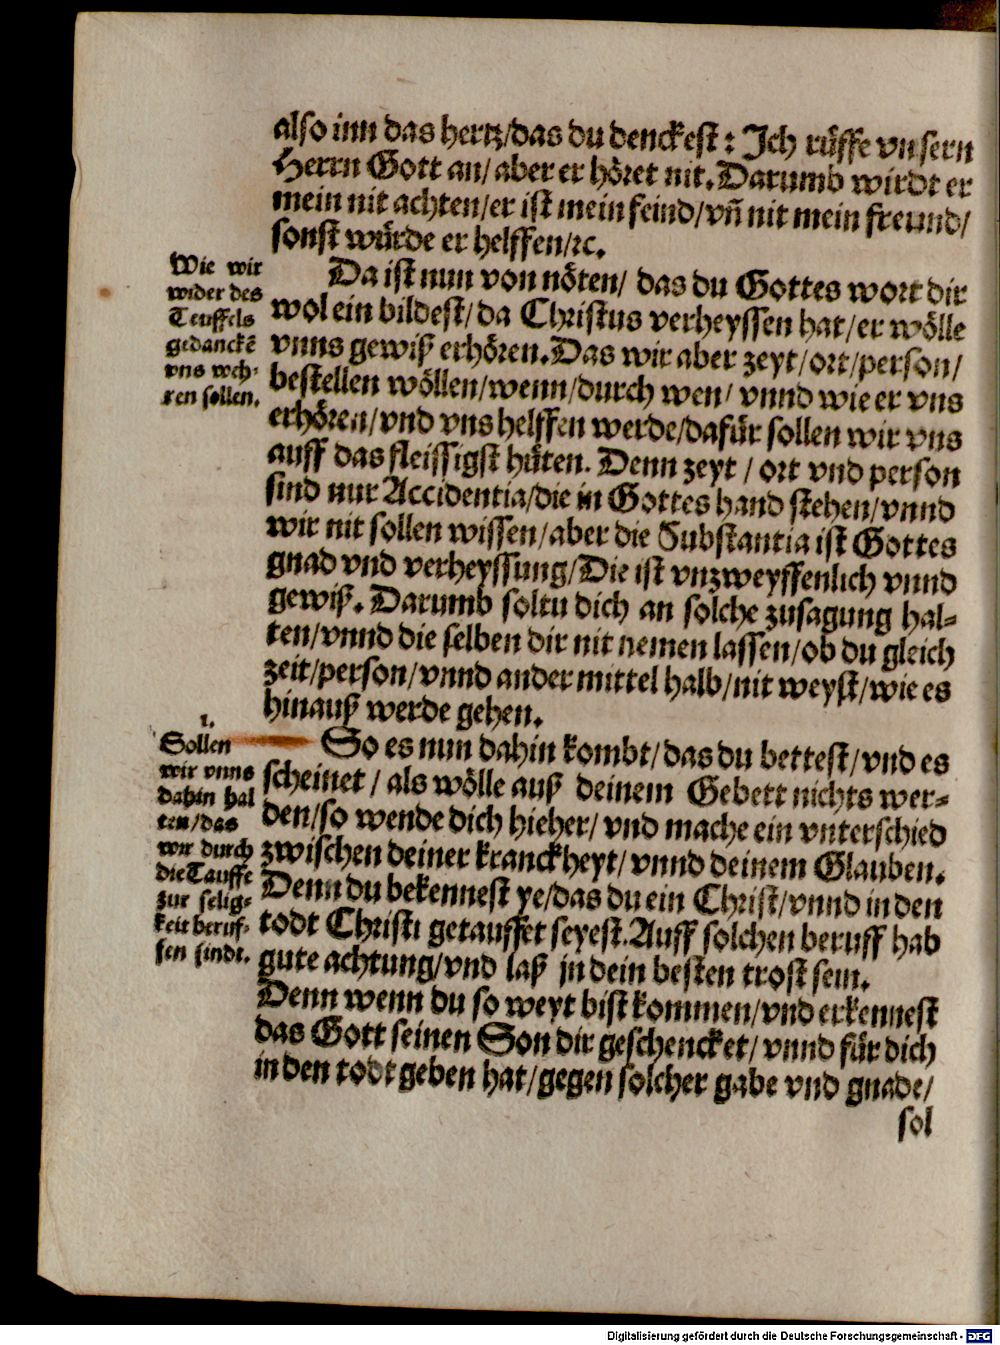 also inn das hertz/das du denckest: Ich rüffe vnsern
Herrn Gott an/ aber er höret nit. Darumb wirdt er
mein nit achten/er ist mein feind/vñ nit mein freund/
sonst würde er helffen/ꝛc.
Wie wir
wider des
Teuffels
gedanckē
vns weh-
ren sollen.
Da ist nun von nöten/ das du Gottes wort dir
wol ein bildest/ da Christus verheyssen hat/er wölle
vnns gewiß erhören. Das wir aber zeyt/ort/person/
bestellen wöllen/wenn/durch wen/ vnnd wie er vns
erhören/vnd vns helffen werde/dafür sollen wir vns
auff das fleissigst hüten. Denn zeyt / ort vnd person
sind nur Accidentia/die in Gottes hand stehen/vnnd
wir nit sollen wissen/aber die Substantia ist Gottes
gnad vnd verheyssung/Die ist vnzweyffenlich vnnd
gewiß. Darumb soltu dich an solche zusagung hal-
ten/vnnd die selben dir nit nemen lassen/ob du gleich
zeit/person/vnnd ander mittel halb/nit weyst/wie es
hinauß werde gehen.
1.
Sollen
wir vnns
dahin hal
ten/das
wir durch
die Tauffe
zur selig-
keit beruf-
fen sindt.
So es nun dahin kombt/das du bettest/vnd es
scheinet / als wölle auß deinem Gebett nichts wer-
den/so wende dich hieher/ vnd mache ein vnterschied
zwischen deiner kranckheyt/ vnnd deinem Glauben.
Denn du bekennest ye/das du ein Christ/vnnd in den
todt Christi getauffet seyest. Auff solchen beruff hab
gute achtung/vnd laß jn dein besten trost sein.
Denn wenn du so weyt bist kommen/vnd erkennest
das Gott seinen Son dir geschencket/ vnnd für dich
in den todt geben hat/gegen solcher gabe vnd gnade/
sol
Digitalisierung gefördert durch die Deutsche Forschungsgemeinschaft - DFG